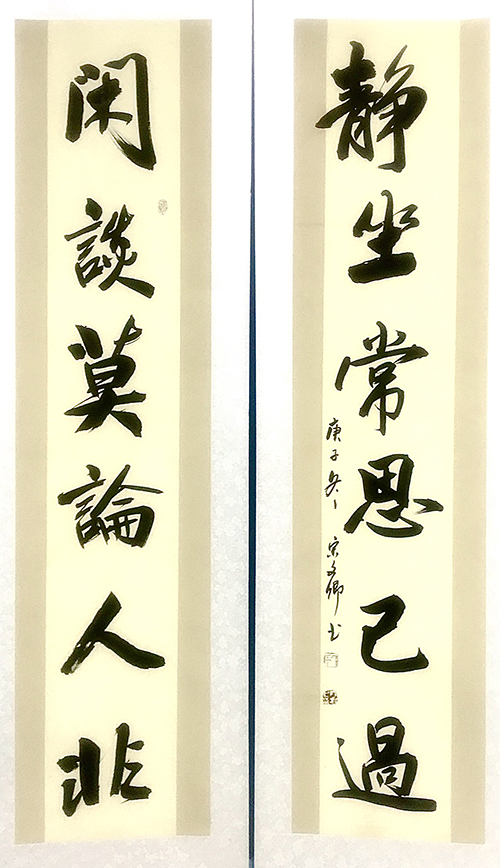 靜坐常思己過
庚子冬 宗文卿书
閑談莫論人非